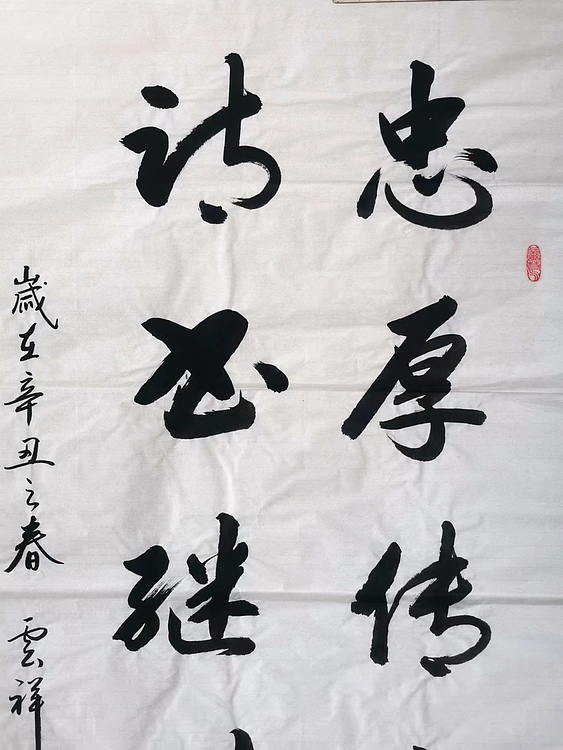 忠厚传
诗书继
歲在辛丑之春 雲祥